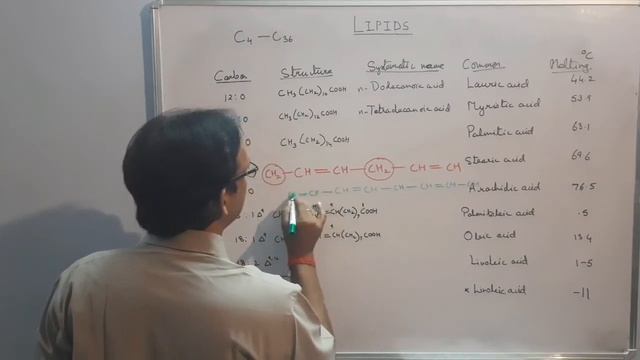 LIPIDS
C4 — C36
Carbon Structure Systematic name Common Melting °C
12:0 CH3(CH2)10COOH n-Dodecanoic acid Lauric acid 44.2
:0 CH3(CH2)12COOH n-Tetradecanoic acid Myristic acid 53.9
CH3(CH2)14COOH Palmitic acid 63.1
Stearic acid 69.6
CH2—CH=CH—CH2—CH=CH
0 Arachidic acid 76.5
CH—CH=CH—CH—CH=CH
: 1 Δ9 CH =CH(CH2)7COOH Palmitoleic acid .5
18:1 Δ9 CH =CH(CH2)7COOH Oleic acid 13.4
18:2 Linoleic acid 1-5
Linolenic acid -11